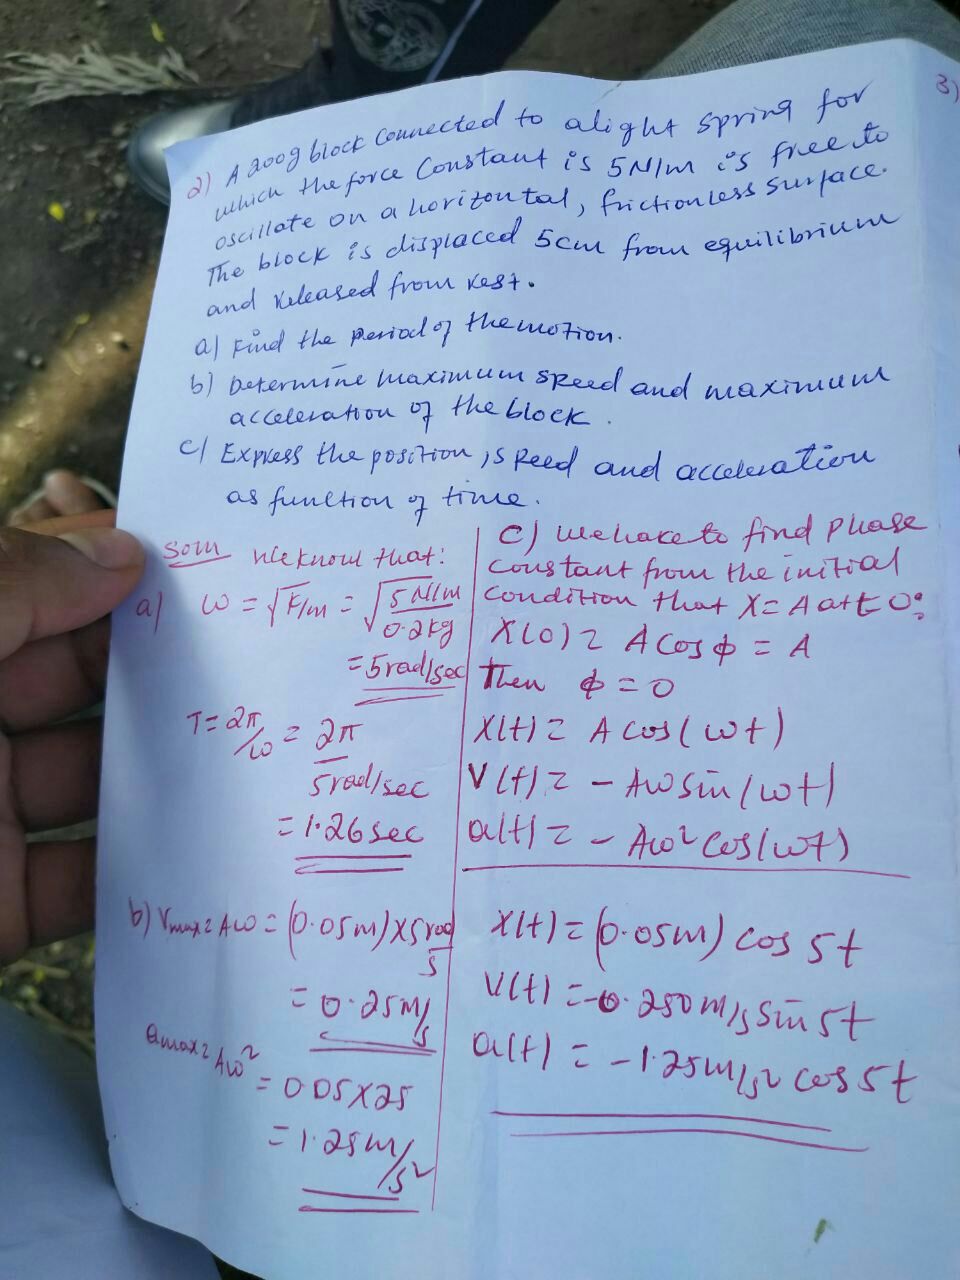 2) A 200g block connected to a light spring for
which the force constant is 5N/m is free to
oscillate on a horizontal, frictionless surface.
The block is displaced 5cm from equilibrium
and released from rest.
a) Find the period of the motion.
b) Determine maximum speed and maximum
acceleration of the block.
c) Express the position, speed and acceleration
as function of time.
Soln We know that:
a) ω = √k/m = √5 N/m / 0.2kg
= 5 rad/sec
T = 2π/ω = 2π / 5 rad/sec
= 1.26 sec
b) Vmax = Aω = (0.05m) x 5 rad/s
= 0.25 m/s
amax = Aω²
= 0.05 x 25
= 1.25 m/s²
c) We have to find phase
constant from the initial
condition that X = A at t=0:
X(0) = A cos φ = A
Then φ = 0
X(t) = A cos(ωt)
V(t) = - Aω sin(ωt)
a(t) = - Aω² cos(ωt)
X(t) = (0.05m) cos 5t
V(t) = -0.250 m/s sin 5t
a(t) = -1.25 m/s² cos 5t
3)